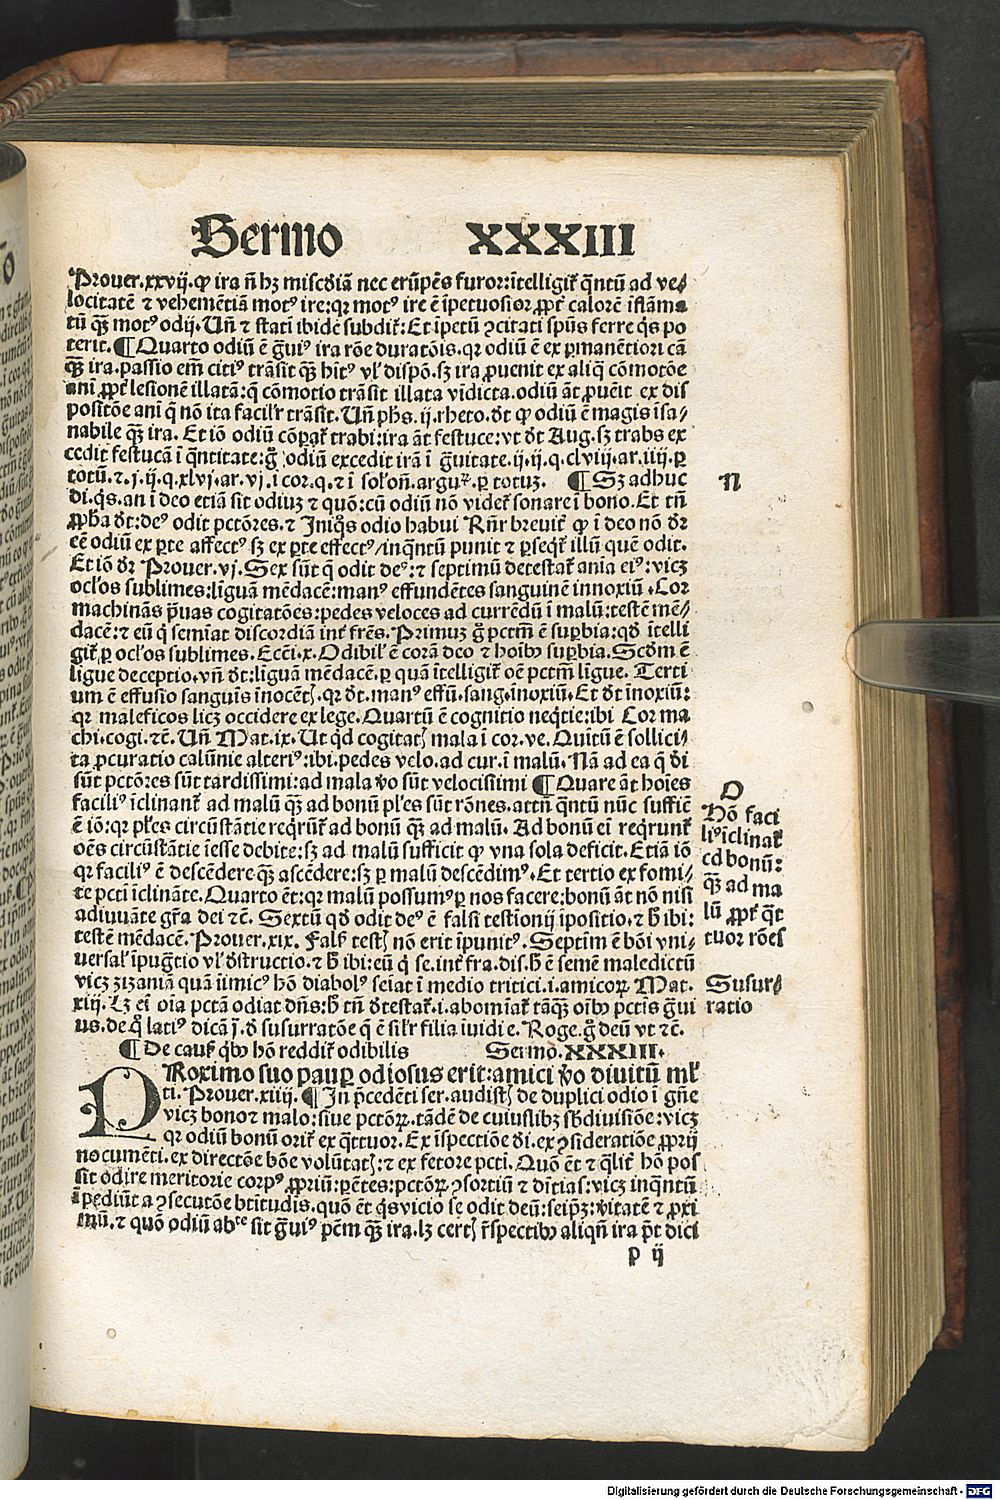 Sermo XXXIII
Prouer.xxvij.ꝙ ira nō hꝫ miscd̓iā nec erūpēs furor:ītelligit̄ q̄ntū ad ve⸗
locitatē ⁊ vehemētiā motꝰ ire:qꝛ motꝰ ire ē īpetuosior ꝓpt̄ calorē īflāma
tū qꝫ̄ motꝰ odij.Uñ ⁊ stati ibidē subdit̄:Et īpetū ꝯcitati spūs ferre q̄s po
terit.¶Quarto odiū ē ḡuiꝰ ira rōe duratōis.qꝛ odiū ē ex ꝑmanētiori cā
qꝫ̄ ira.passio em̄ citiꝰ trāsit qꝫ̄ hītꝰ vl̓ dispō.sꝫ ira ꝓuenit ex aliq̄ cōmotōe
ani ꝓpt̄ lesionē illatā:q̄ cōmotio trāsit illata vīdicta.odiū āt ꝓueīt ex dis
positōe ani q̄ nō ita facilr̓ trāsit.Uñ phs.ij.rheto.dt̄ ꝙ odiū ē magis īsa⸗
nabile qꝫ̄ ira. Et iō odiū cōꝑat̄ trabi:ira āt festuce:vt dt̄ Aug.sꝫ trabs ex
cedit festucā ī q̄ntitate:g̊ odiū excedit irā ī ḡuitate.ij.ij.q.clviij.ar.iiij.ꝑ
totū.⁊.j.ij.q.xlvj.ar.vj.i cor.q.⁊ ī sol̓oñ.arguꝝ.ꝑ totuꝫ. ¶Sꝫ adhuc
di.q̄s.an ī deo etiā sit odiuꝫ ⁊ quō:cū odiū nō videt̄ sonare ī bono.Et tñ
ꝓpħa dt̄:deꝰ odit pctōres.⁊ Iniq̊s odio habui Rñr breuit̄ ꝙ ī deo nō dr̄
eē odiū ex ꝑte affectꝰ sꝫ ex ꝑte effectꝰ/inq̄ntū punit ⁊ ꝑseq̄t̄ illū quē odit.
Et iō dr̄ Prouer.vj.Sex sūt q̄ odit deꝰ:⁊ septimū detestat̄ ania eiꝰ:vicꝫ
ocl̓os sublimes:līguā mēdacē:manꝰ effundētes sanguinē innoxiū.Cor
machinās p̄uas cogitatōes:pedes veloces ad currēdū ī malū:testē mē⸗
dacē:⁊ eū q̇ semīat discordiā int̄ fr̄es.Primuꝫ g̊ pctm̄ ē suꝑbia:qd̓ ītelli
git̄ ꝑ ocl̓os sublimes.Ecci.x.Odibil̓ ē corā deo ⁊ hoībꝰ suꝑbia.Scd̓m ē
ligue deceptio.vñ dt̄:līguā mēdacē.ꝑ quā ītelligit̄ oē pctm̄ ligue. Terti
um ē effusio sanguīs īnocētꝭ.qꝛ dt̄.manꝰ effū.sang.īnoxiū.Et dt̄ īnoxiū:
qꝛ maleficos licꝫ occidere ex lege.Quartū ē cognitio neq̄tie:ibi Cor ma
chi.cogi.⁊c̄.Uñ Mat.ix.Ut qd̓ cogitatꝭ mala ī cor.ve.Quītū ē sollici⸗
ta ꝓcuratio calūnie alteriꝰ:ibi.pedes velo.ad cur.ī malū.Nā ad ea q̄ di
sūt pctōres sūt tardissimi:ad mala v̓o sūt velocissimi ¶Quare āt hoīes
faciliꝰ īclinant̄ ad malū qꝫ̄ ad bonū pl̓es sūt rōnes.attñ q̄ntū nūc suffic
ē iō:qꝛ pl̓es circūstātie req̇rūt̄ ad bonū qꝫ̄ ad malū. Ad bonū ei req̇runt̄
oēs circūstātie īesse debite:sꝫ ad malū sufficit ꝙ vna sola deficit.Etiā iō
qꝛ faciliꝰ ē descēdere qꝫ̄ ascēdere:sꝫ ꝑ malū descēdimꝰ.Et tertio ex fomi⸗
te pcti īclināte.Quarto ēt:qꝛ malū possumꝰ ꝑ nos facere:bonū āt nō nisi
adiuuāte gr̄a dei ⁊c̄. Sextū qd̓ odit deꝰ ē falsi testīonij īpositio.⁊ ħ ibi:
testē mēdacē.Prouer.xix. Fals̓ testꝭ nō erit īpunitꝰ.Septīm ē bōi vni⸗
uersal̓ īpuḡtio vl̓ d̓structio.⁊ ħ ibi:eū q̇ se.int̄ fra.dis.ħ ē semē maledictū
vicꝫ zizaniā quā iīmicꝰ hō diabolꝰ seīat ī medio tritici.i.amicoꝝ Mat.
xiij. Lꝫ ei oīa pctā odiat dñs:ħ tñ d̓testat̄.i.abomīat̄ tāqꝫ̄ oībꝰ pctīs ḡui
us.de q̊ latiꝰ dicā j.d̓ susurratōe q̄ ē sil̓r filia īuidie. Roge.g̊ deū vt ⁊c̄.
¶De caus̓ q̇bꝰ hō reddit̄ odibilis Sermo.XXXIII.
PRoximo suo pauꝑ odiosus erit:amici v̓o diuitū ml̓
ti.Prouer.xiiij.¶In p̄cedēti ser.audistꝭ de duplici odio ī gñe
vicꝫ bono ⁊ malo:siue pctōꝝ.tādē de cuiuslibꝫ sb̄diuisiōe:vicꝫ
qꝛ odiū bonū orit̄ ex q̄ttuor.Ex īspectiōe di.ex ꝯsideratiōe ꝓprij
nocumēti.ex directōe bōe volūtatꝭ:⁊ ex fetore pcti.Quō ēt ⁊ q̄lit̄ hō pos
sit odire meritorie corpꝰ ꝓpriū:ꝑētes:pctōꝝ ꝯsortiū ⁊ dītias:vicꝫ inq̄ntū
īpediūt a ꝯsecutōe btītudīs.quō ēt q̇s vicio se odit deū:seipꝫ:v̓itatē ⁊ ꝓxi
mū.⁊ quō odiū ab̄te sit ḡuiꝰ pctm̄ qꝫ̄ ira.lꝫ certꝭ r̄spectibꝰ aliqñ ira p̄t dici
p ij
N
O
Hō faci
liꝰ īclinat̄
ad bonū:
qꝫ̄ ad ma
lū ꝓpt̄ q̄t
tuor rōes
Susur⸗
ratio
Digitalisierung gefördert durch die Deutsche Forschungsgemeinschaft - DFG